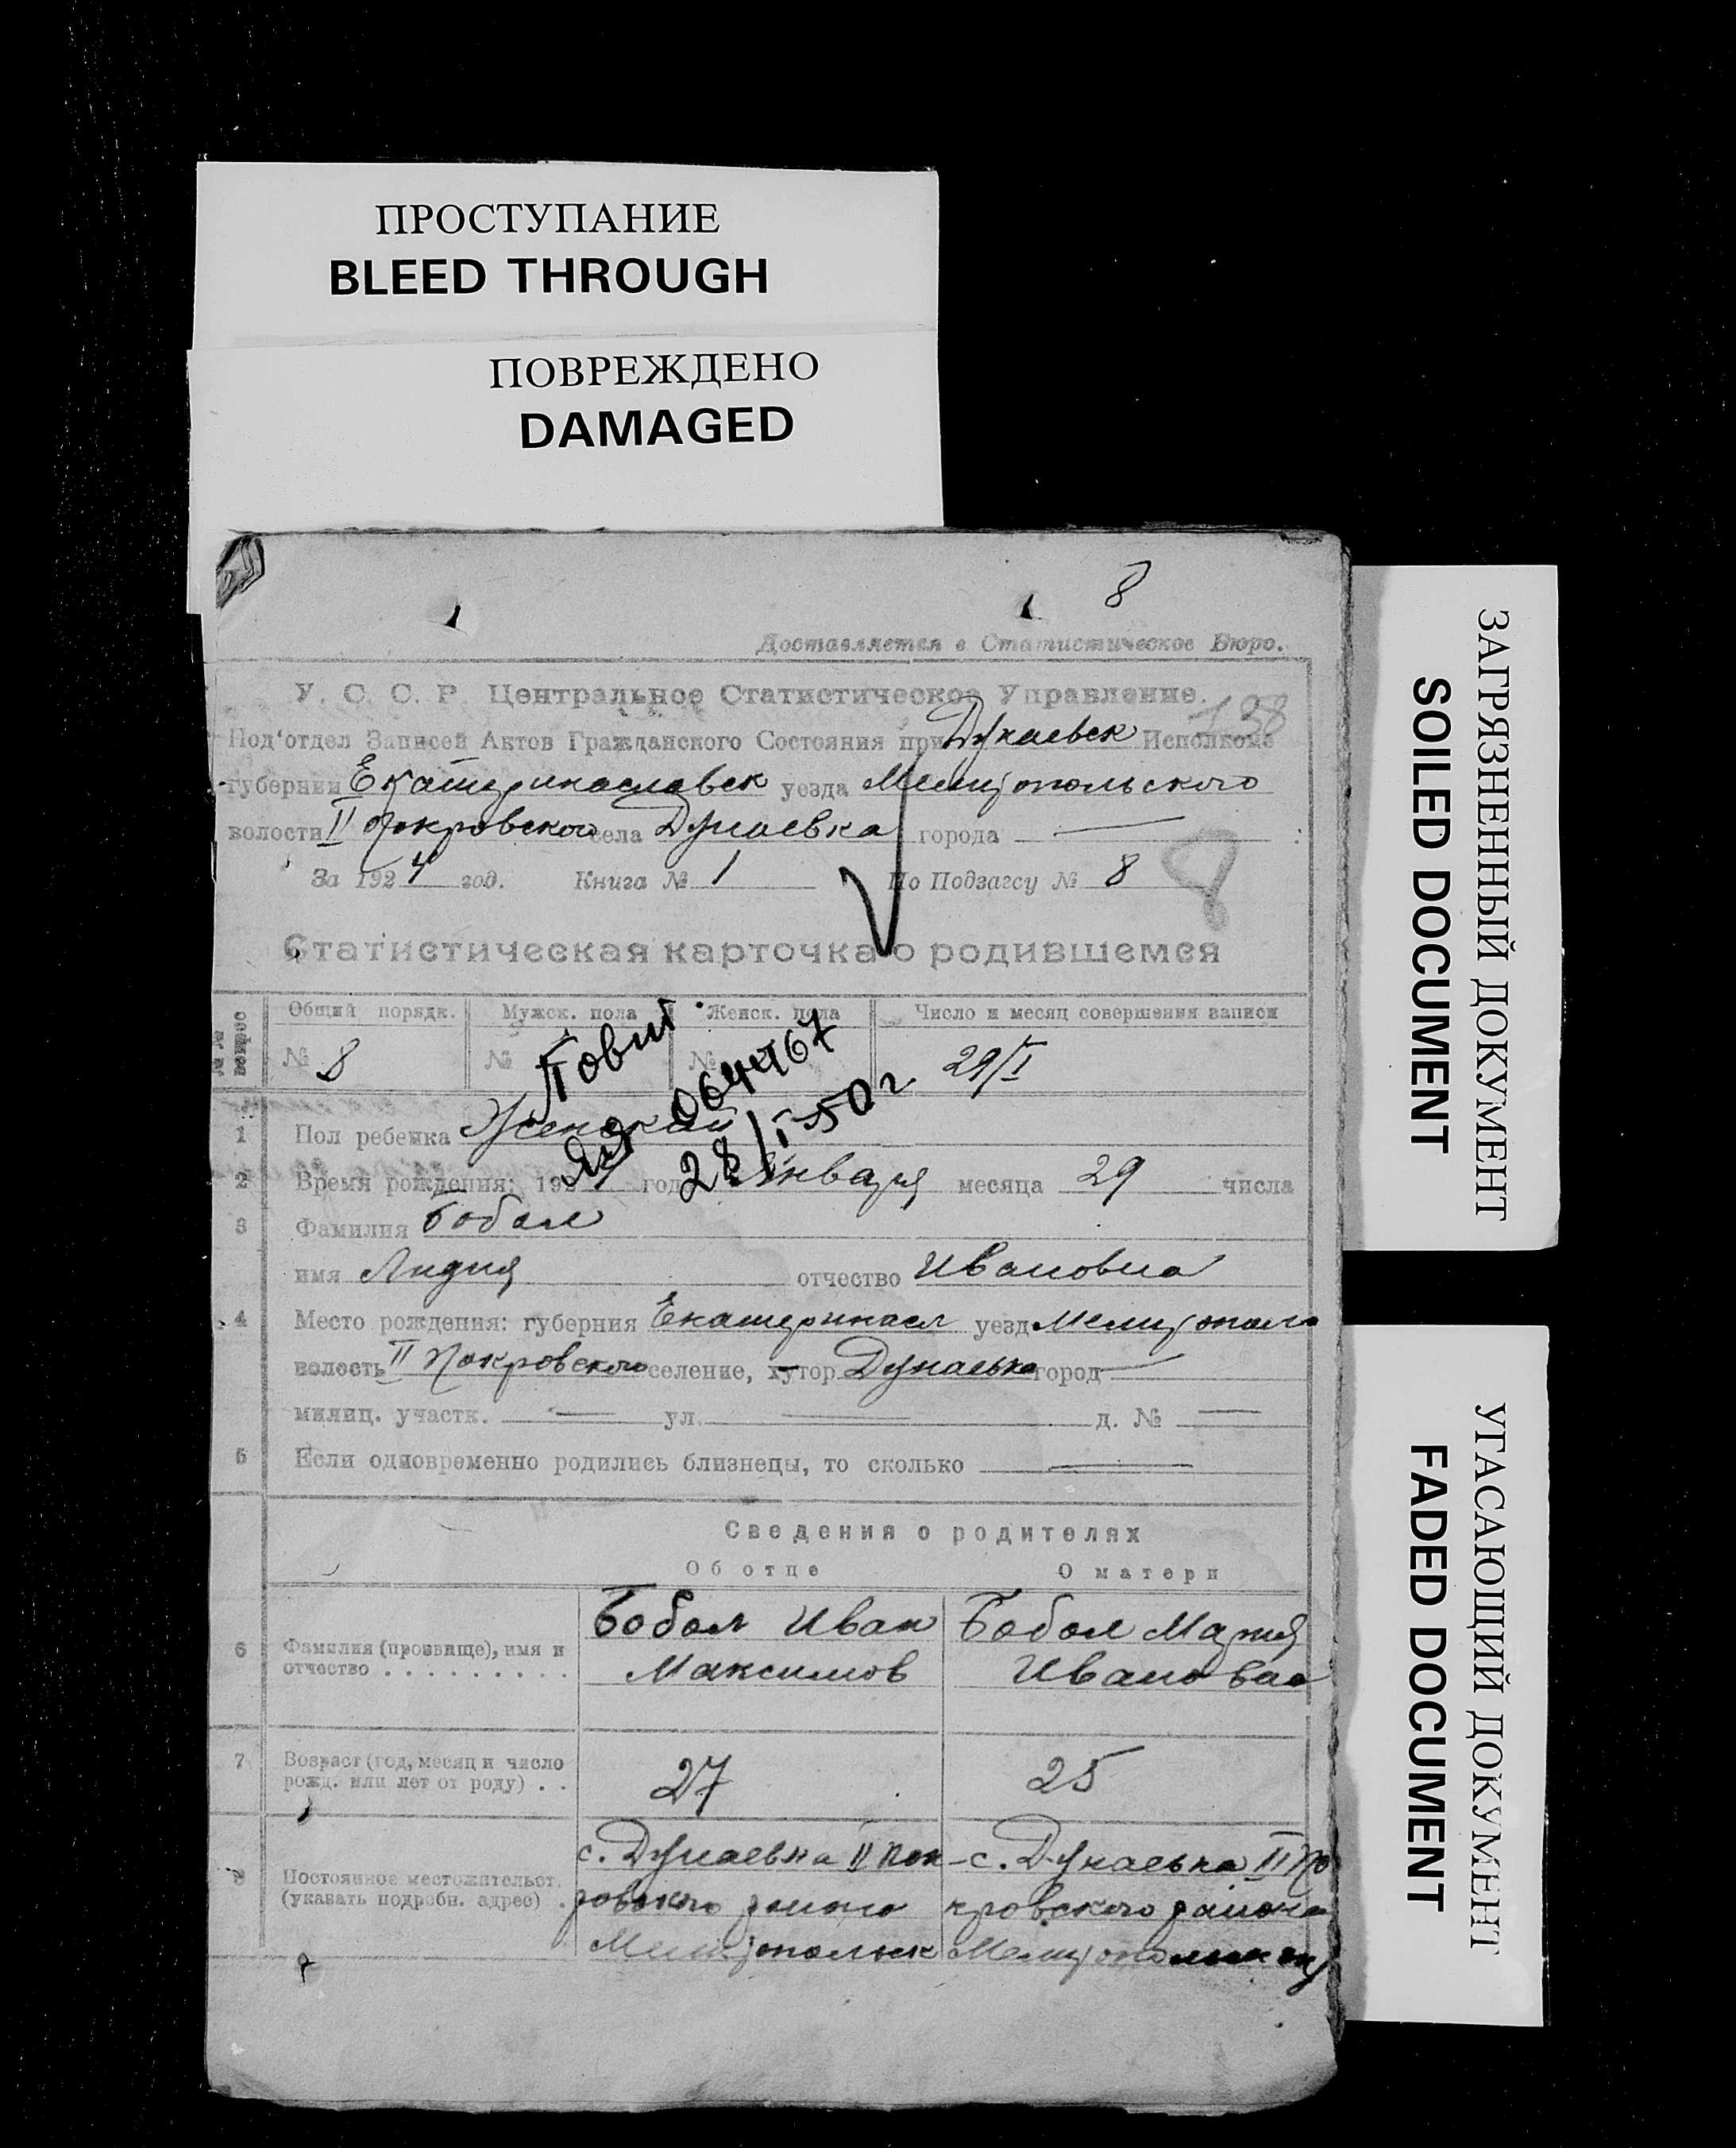 ПРОСТУПАНИЕ
BLEED THROUGH
ПОВРЕЖДЕНО
DAMAGED
8
Доставляется в Статистическое Бюро.
У. С. С. Р. Центральное Статистическое Управление.
138
Под'отдел Записей Актов Гражданского Состояния при Дунаевск Исполкоме
губернии Екатеринославск уезда Мелитопольского
волости II Покровской села Дунаевка города —
За 1924 год. Книга № 1 По Подзагсу № 8
8
Статистическая карточка о родившемся
Общий порядк. Мужск. пола Женск. пола Число и месяц совершения записи
№ 8 № № 29/I
Повт
064467
28/I-50 г
1 Пол ребенка Женский
2 Время рождения: 1924 год Января месяца 29 числа
3 Фамилия Бобал
имя Лидия отчество Ивановна
4 Место рождения: губерния Екатеринасл уезд Мелитополь
волость II Покровского селение, хутор Дунаевка город —
милиц. участк. — ул. — д. № —
5 Если одновременно родились близнецы, то сколько —
Сведения о родителях
Об отце О матери
6 Фамилия (прозвище), имя и отчество . . . . . . . . . .
Бобал Иван
Максимов
Бобал Мария
Ивановна
7 Возраст (год, месяц и число рожд. или лет от роду) . .
27
25
8 Постоянное местожительст. (указать подробн. адрес) .
с. Дунаевка II Пок-
ровского района
Мелитопольск
с. Дунаевка II По
кровского района
Мелитопольск окр
ЗАГРЯЗНЕННЫЙ ДОКУМЕНТ
SOILED DOCUMENT
УГАСАЮЩИЙ ДОКУМЕНТ
FADED DOCUMENT